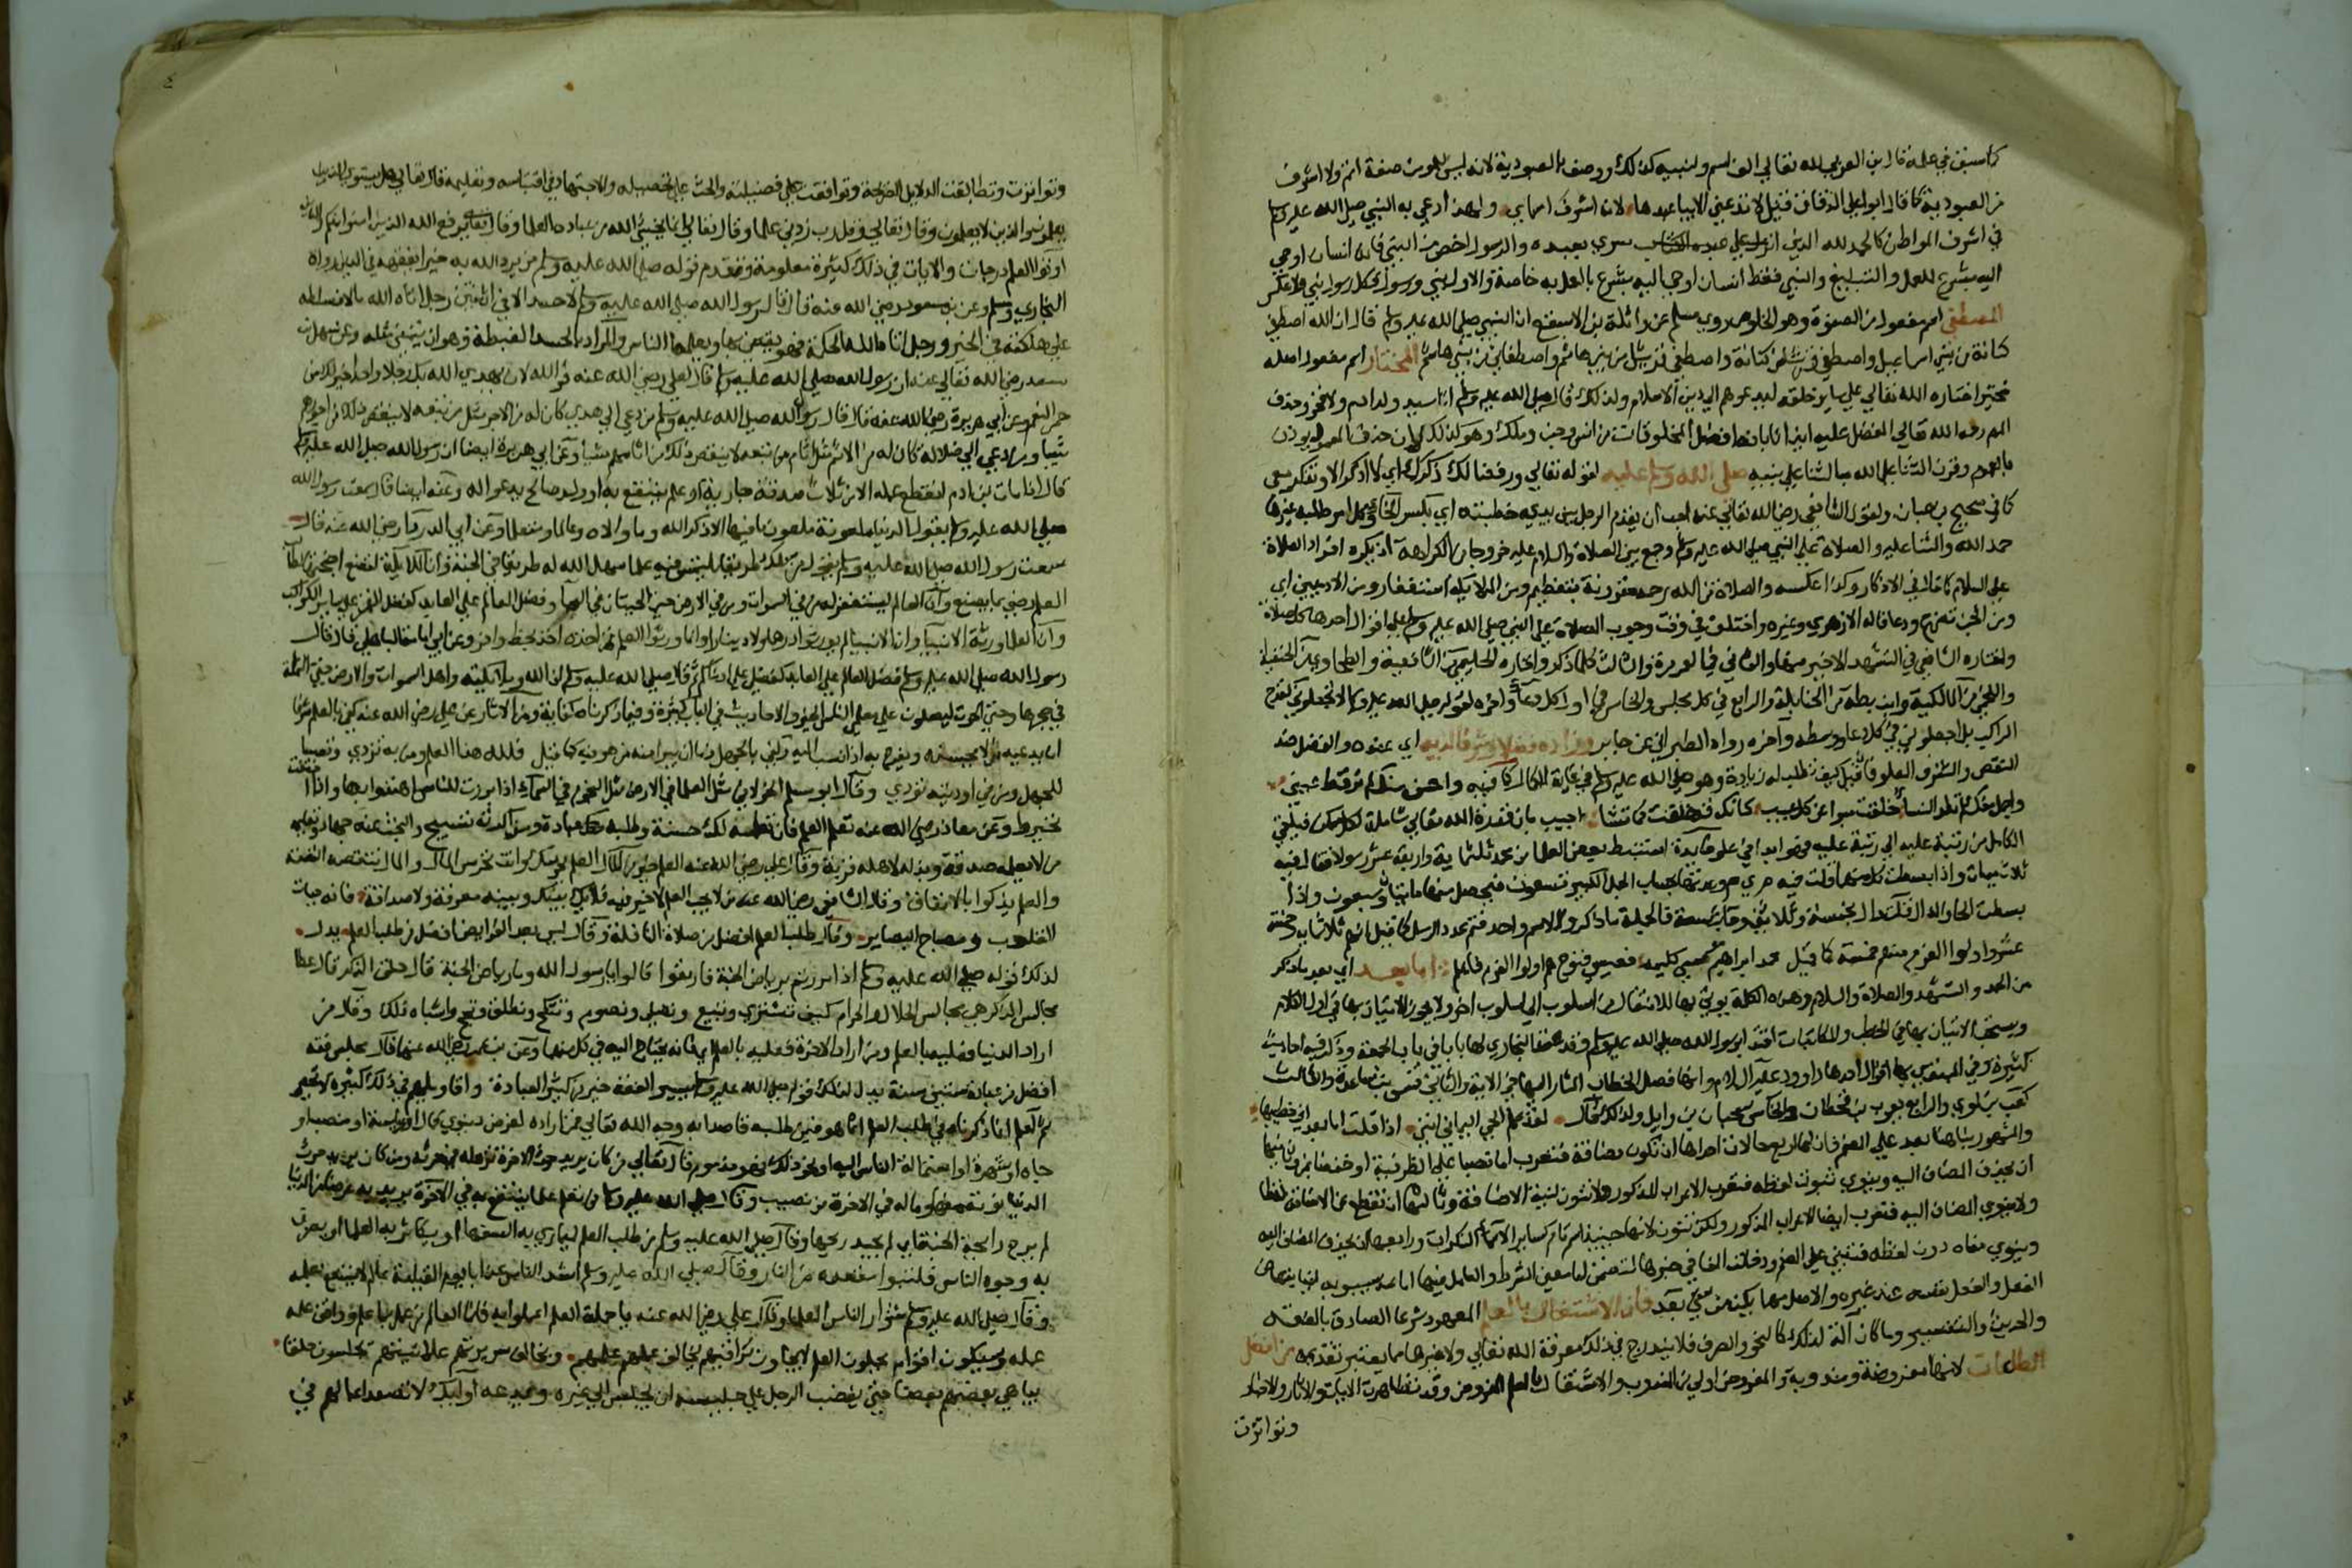 كما سبق في عبده قال ابن العربي لله تعالى الف اسم ولنبيه كذلك ووصف بالعبودية لانه ليس للمومن صفة اتم ولا اشرف
من العبودية كما قال ابو علي الدقاق
في اشرف المواطن كالحمد لله الذي انزل على عبده الكتاب سري بعبده والرسول اخص من النبي فانه انسان اوحي
اليه بشرع للعمل والتبليغ والنبي فقط انسان اوحي اليه بشرع بالعمل به خاصة
المصطفى اسم مفعول من الصفوة وهو الخلوص روى مسلم عن واثلة بن الاسقع ان النبي صلى الله عليه وسلم قال ان الله اصطفى
كنانة من بني اسماعيل واصطفى قريشا من كنانة واصطفى من قريش بني هاشم واصطفاني من بني هاشم المختار اسم مفعول اصله
مختير اختاره الله تعالى على ساير خلقه ليدعوهم الى دين الاسلام ولذلك قال صلى الله عليه وسلم انا سيد ولد ادم ولا فخر وحذف
بالعموم وقرن الثنا على الله بالثنا على نبيه صلى الله وسلم عليه لقوله تعالى ورفعنا لك ذكرك اي لا اذكر الا وتذكر معي
كما في صحيح ابن حبان ولقول الشافعي رضي الله تعالى عنه احب ان يقدم الرجل بين يدي خطبته
حمد الله والثنا عليه والصلاة على النبي صلى الله عليه وسلم وجمع بين الصلاة والسلام عليه خروجا من الكراهة اذ يكره افراد الصلاة
عن السلام كما قاله في الاذكار وكذا عكسه والصلاة من الله رحمة مقرونة بتعظيم ومن الملايكة استغفار ومن الادميين اي
ومن الجن تضرع ودعا قاله الازهري وغيره واختلف في وقت وجوب الصلاة على النبي صلى الله عليه وسلم على اقوال احدها كل صلاة
واختاره الشافعي في التشهد الاخير منها والثاني في العمر مرة والثالث كلما ذكر واختاره الحليمي من الشافعية والطحاوي من الحنفية
واللخمي من المالكية وابن بطة من الحنابلة والرابع في كل مجلس والخامس في اول كل دعا واخره لقوله صلى الله عليه وسلم لا تجعلوني كقدح
الراكب بل اجعلوني في كل دعا ووسطه واخره رواه الطبراني عن جابر وزاده فضلا وشرفا لديه اي عنده والفضل ضد
النقص والشرف العلو فان قيل كيف تطلب له زيادة وهو صلى الله عليه وسلم في غاية الكمال كما قيل واحسن منك لم تر قط عيني
واجمل منك لم تلد النسا خلقت مبرا من كل عيب كانك قد خلقت كما تشا اجيب بان قدرة الله تعالى شاملة
ثلاث ميمات واذا بسطت كلا منها قلت فيه م ي م
بسطت الحا والدال
عشر واولوا العزم منهم خمسة كما قيل محمد ابراهيم موسى كليمه فعيسى فنوح هم اولوا العزم فاعلم اما بعد اي بعد ما ذكر
من الحمد والتشهد والصلاة والسلام وهذه الكلمة يوتى بها للانتقال من اسلوب الى اسلوب اخر ولا يجوز الاتيان بها في اول الكلام
ويستحب الاتيان بها في الخطب والمكاتبات اقتدا برسول الله صلى الله عليه وسلم وقد عقد البخاري لها بابا في باب الجمعة وذكر فيه احاديث
كثيرة وفي المبتدي بها اقوال احدها داوود عليه السلام وانها فصل الخطاب المشار اليها في الاية والثاني قس بن ساعدة والثالث
كعب بن لوي والرابع يعرب بن قحطان والخامس سحبان بن وايل ولذلك قال لقد علم الحي اليمانون انني اذا قلت اما بعد اني خطيبها
ان يحذف المضاف اليه وينوي ثبوت لفظه فتعرب الاعراب المذكور ولا تنون لنية الاضافة وثالثها ان تقطع عن الاضافة لفظا
ولا ينوى المضاف اليه فتعرب ايضا الاعراب المذكور ولكن تنون لانها حينئذ اسم تام كساير الاسماء النكرات ورابعها ان يحذف المضاف اليه
وينوي معناه دون لفظه فتبني على الضم ودخلت الفا في حيزها لتضمن اما معنى الشرط والعامل فيها اما عند سيبويه
الفعل والفعل نفسه عند غيره والاصل مهما يكن من شي بعد فان الاشتغال بالعلم المعهود شرعا الصادق بالفقه
والحديث والتفسير وما كان آلة لذلك كالنحو والصرف فلا يندرج في ذلك معرفة الله تعالى ولا غيرها مما يعتبر تقديمه من افضل
الطاعات لانها مفروضة ومندوبة والمفروض اولى من المندوب والاشتغال بالعلم المفروض وقد تظاهرت الايات والاثار والاخبار
وتواترت
وتواترت وتطابقت الدلايل الصريحة وتوافقت على فضيلته والحث على تحصيله والاجتهاد في اقتباسه وتعليمه قال تعالى هل يستوي الذين
يعلمون والذين لا يعلمون وقال تعالى وقل رب زدني علما وقال تعالى انما يخشى الله من عباده العلما وقال تعالى يرفع الله الذين امنوا منكم والذين
اوتوا العلم درجات والايات في ذلك كثيرة معلومة وتقدم قوله صلى الله عليه وسلم من يرد الله به خيرا يفقهه في الدين رواه
البخاري ومسلم وعن بن مسعود رضي الله عنه قال قال رسول الله صلى الله عليه وسلم لا حسد الا في اثنتين رجل اتاه الله مالا فسلطه
على هلكته في الخير ورجل اتاه الله الحكمة فهو يقضي بها ويعلمها الناس والمراد بالحسد الغبطة وهو ان يتمنى مثله وعن سهل بن
سعد رضي الله تعالى عنه ان رسول الله صلى الله عليه وسلم قال لعلي رضي الله عنه فوالله لان يهدي الله بك رجلا واحدا خير لك من
حمر النعم وعن ابي هريرة رضي الله عنه قال قال رسول الله صلى الله عليه وسلم من دعى الى هدى كان له من الاجر مثل من تبعه لا ينقص ذلك من اجورهم
شيا ومن دعى الى ضلالة كان له من الاثم مثل اثام من تبعه لا ينقص ذلك من اثامهم شيا وعن ابي هريرة ايضا ان رسول الله صلى الله عليه وسلم
قال اذا مات بن ادم انقطع عمله الا من ثلاث صدقة جارية او علم ينتفع به او ولد صالح يدعو له وعنه ايضا قال سمعت رسول الله
صلى الله عليه وسلم يقول الدنيا ملعونة ملعون ما فيها الا ذكر الله وما والاه وعالما ومتعلما وعن ابي الدردا رضي الله عنه قال
سمعت رسول الله صلى الله عليه وسلم يقول من سلك طريقا يلتمس فيه علما سهل الله له طريقا الى الجنة وان الملايكة لتضع اجنحتها لطالب
العلم رضي بما يصنع وان العالم ليستغفر له من في السموات ومن في الارض حتى الحيتان في الماء وفضل العالم على العابد كفضل القمر على ساير الكواكب
وان العلما ورثة الانبيا وان الانبيا لم يورثوا درهما ولا دينارا وانما ورثوا العلم فمن اخذه اخذ بحظ وافر وعن ابي امامة الباهلي قال قال
رسول الله صلى الله عليه وسلم فضل العالم على العابد كفضلي على ادناكم ثم قال صلى الله عليه وسلم ان الله وملايكته واهل السموات والارض حتى النملة
في جحرها وحتى الحوت ليصلون على معلمي الناس الخير والاحاديث في الباب كثيرة وفيما ذكرناه كفاية ومن الاثار عن علي رضي الله عنه كفى بالعلم شرفا
ان يدعيه من لا يحسنه ويفرح به اذا نسب اليه وكفى بالجهل ذما ان يتبرا منه من هو فيه
للجهل ومن في اوديته تردي وقال ابو مسلم الخولاني مثل العلما في الارض مثل النجوم في السماء اذا برزت للناس اهتدوا بها واذا خفيت
تخيروا وعن معاذ رضي الله عنه تعلم العلم فان تعلمه لك حسنة وطلبه عبادة ومذاكرته تسبيح والبحث عنه جهاد وتعليمه
من لا يعلمه صدقة وبذله لاهله قربة وقال علي رضي الله عنه العلم خير من المال العلم يحرسك وانت تحرس المال والمال ينقصه النفقة
والعلم يزكوا بالانفاق وقال الشافعي رضي الله عنه من لا يحب العلم لا خير فيه فلا يكن بينك وبينه معرفة ولا صداقة فانه حياة
القلوب ومصباح البصاير وقال طلب العلم افضل من صلاة النافلة وقال ليس بعد الفرايض افضل من طلب العلم يدل
لذلك قوله صلى الله عليه وسلم اذا مررتم برياض الجنة فارتعوا قالوا يا رسول الله وما رياض الجنة قال حلق الذكر قال عطا
مجالس الذكر هي مجالس الحلال والحرام كيف تشتري وتبيع وتصلي وتصوم وتنكح وتطلق وتحج واشباه ذلك وقال من
اراد الدنيا فعليه بالعلم ومن اراد الاخرة فعليه بالعلم فانه يحتاج اليه في كل منهما وعن بن عمر رضي الله عنهما قال مجلس فقه
افضل من عبادة ستين سنة يدل لذلك قوله صلى الله عليه وسلم يسير الفقه خير من كثير العبادة واقاويلهم في ذلك كثيرة لا تحصر
ثم اعلم ان ما ذكرناه في طلب العلم انما هو فيمن طلبه قاصدا به وجه الله تعالى فمن اراده لغرض دنيوي كمال او رياسة او منصب او
جاه او شهرة او استمالة الناس اليه او نحو ذلك فهو مذموم قال تعالى من كان يريد حرث الاخرة نزد له في حرثه ومن كان يريد حرث
الدنيا نوته منها وما له في الاخرة من نصيب وقال صلى الله عليه وسلم من تعلم علما ينتفع به في الآخرة يريد به عرضا من الدنيا
لم يرح رايحة الجنة اي لم يجد ريحها وقال صلى الله عليه وسلم من طلب العلم ليماري به السفها او يكاثر به العلما او يصرف
به وجوه الناس فليتبوا مقعده من النار وقال صلى الله عليه وسلم اشد الناس عذابا يوم القيامة عالم لا ينتفع بعلمه
وقال صلى الله عليه وسلم شرار الناس العلما وقال علي رضي الله عنه يا حملة العلم اعملوا به فانما العالم من عمل بما علم ووافق علمه
عمله وسيكون اقوام يحملون العلم لا يجاوز تراقيهم يخالف عملهم علمهم ويخالف سريرتهم علانيتهم يجلسون حلقا
يباهي بعضهم بعضا حتى يغضب الرجل على جليسه ان يجلس الى غيره ويدعه اوليك لا تصعد اعمالهم في